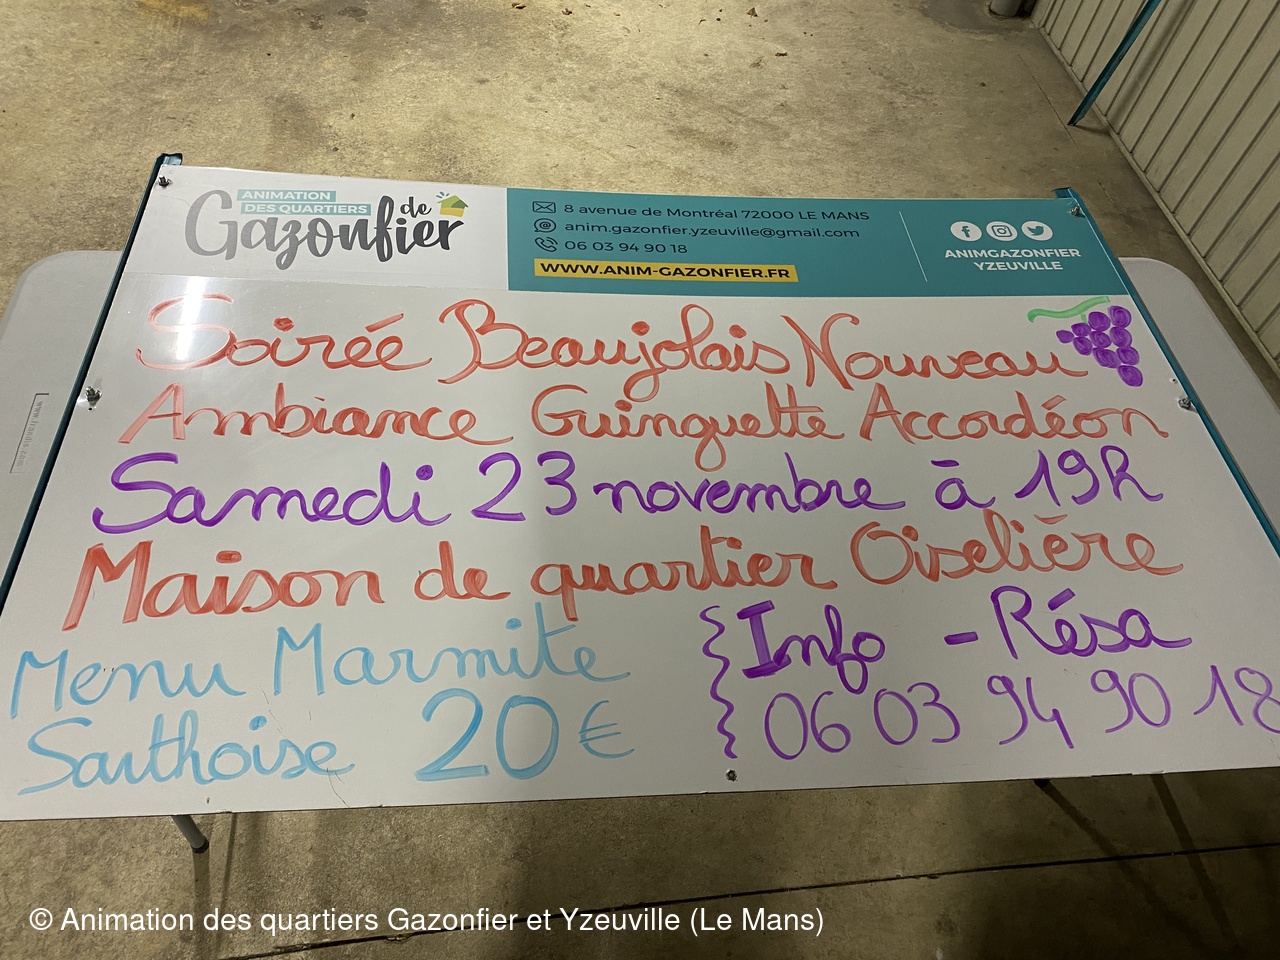 ANIMATION
DES QUARTIERS
de
Gazonfier
8 avenue de Montréal 72000 LE MANS
anim.gazonfier.yzeuville@gmail.com
06 03 94 90 18
WWW.ANIM-GAZONFIER.FR
ANIMGAZONFIER
YZEUVILLE
Soirée Beaujolais Nouveau
Ambiance Guinguette Accordéon
Samedi 23 novembre à 19h
Maison de quartier Oiselière
Menu Marmite
Sarthoise 20€
Info - Résa
06 03 94 90 18
© Animation des quartiers Gazonfier et Yzeuville (Le Mans)